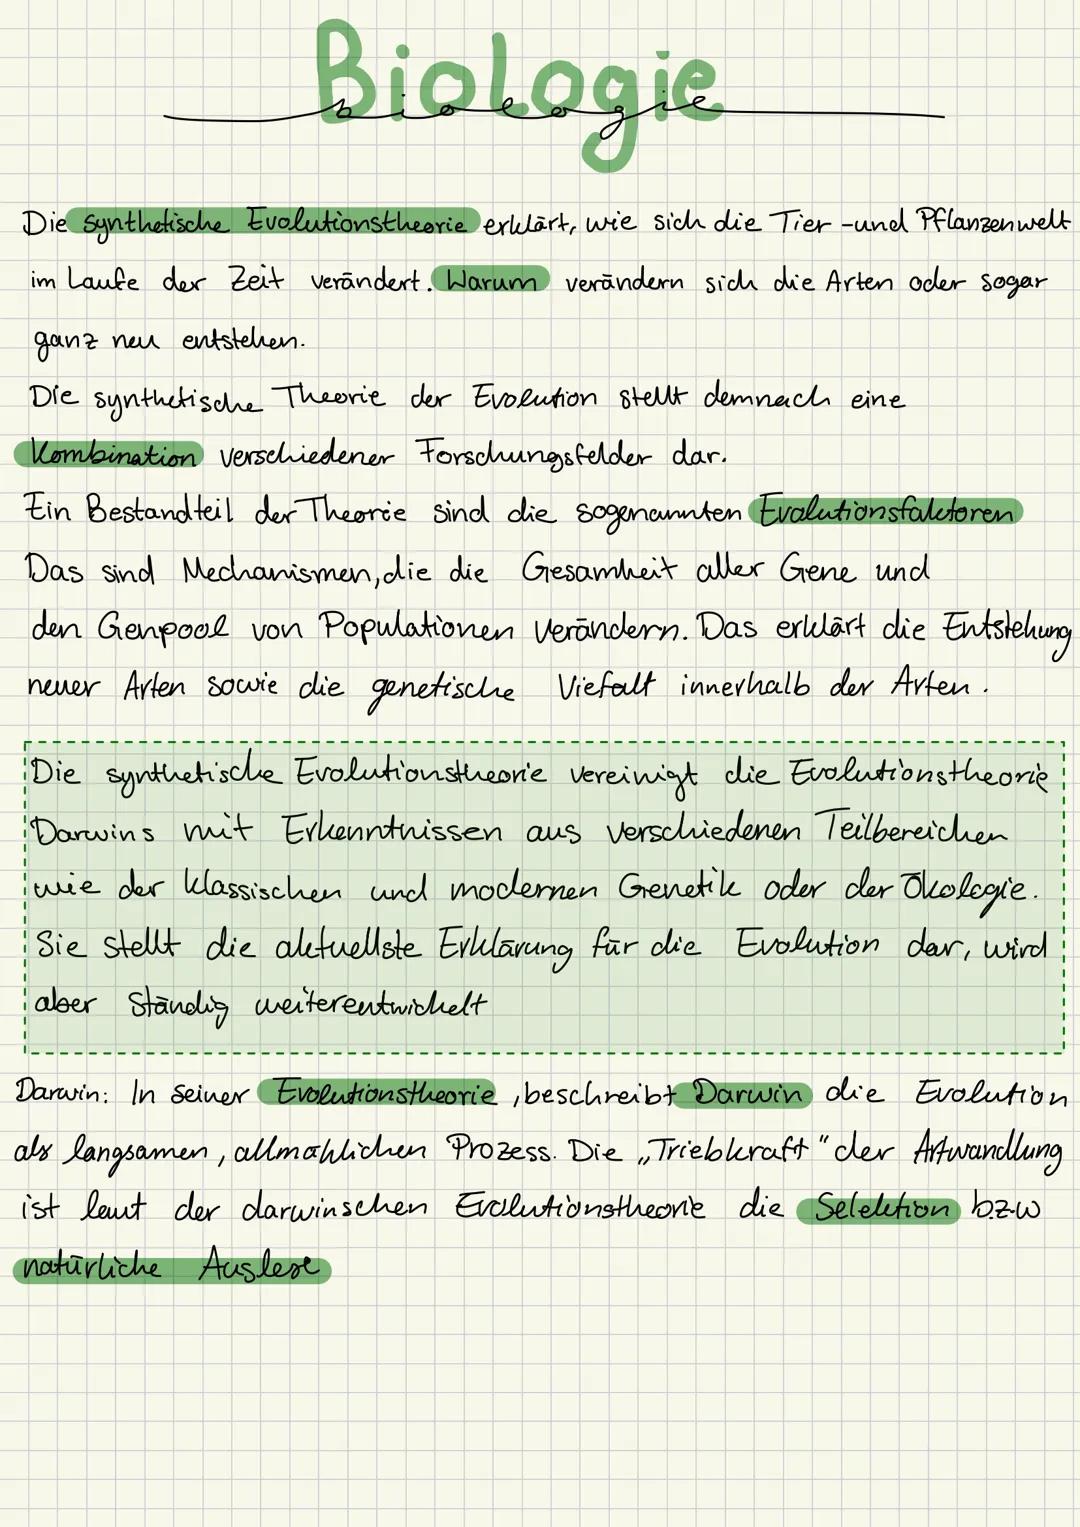 Biologie
biologie
Die synthetische Evolutionstheorie erklärt, wie sich die Tier -und Pflanzenwelt
im Laufe der Zeit verändert. Warum verändern sich die Arten oder sogar
ganz neu entstehen.
Die synthetische Theorie der Evolution stellt demnach eine
Kombination verschiedener Forschungsfelder dar.
Ein Bestandteil der Theorie sind die sogenannten Evolutionsfaktoren
Das sind Mechanismen, die die Gesamheit aller Gene und
den Genpool von Populationen verändern. Das erklärt die Entstehung
neuer Arten sowie die genetische Viefalt innerhalb der Arten.
Die synthetische Evolutionstheorie vereinigt die Evolutionstheorie
Darwins mit Erkenntnissen aus verschiedenen Teilbereichen
wie der klassischen und modernen Genetik oder der Ökologie.
Sie stellt die aktuellste Erklärung für die Evolution dar, wird
aber ständig weiterentwickelt
Darwin: In seiner Evolutionstheorie, beschreibt Darwin die Evolution
als langsamen, allmählichen Prozess. Die „Triebkraft" der Artwandlung
ist laut der darwinschen Evolutionstheorie die Selektion bzw
natürliche Auslese